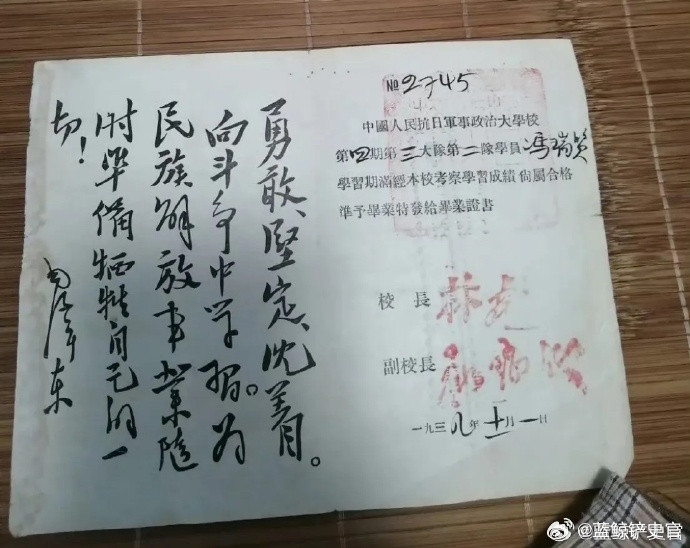 №2745
中國人民抗日軍事政治大學校
第四期第三大隊第二隊學員馮瑞
學習期滿經本校考察學習成績尙屬合格
準予畢業特發給畢業證書
校長 林彪
副校長 羅瑞卿
一九三八年 月一日
勇敢、堅定、沈着。
向斗争中学習。为
民族解放事業隨
时準備牺牲自己的一
切！
毛泽东
@蓝鲸铲史官